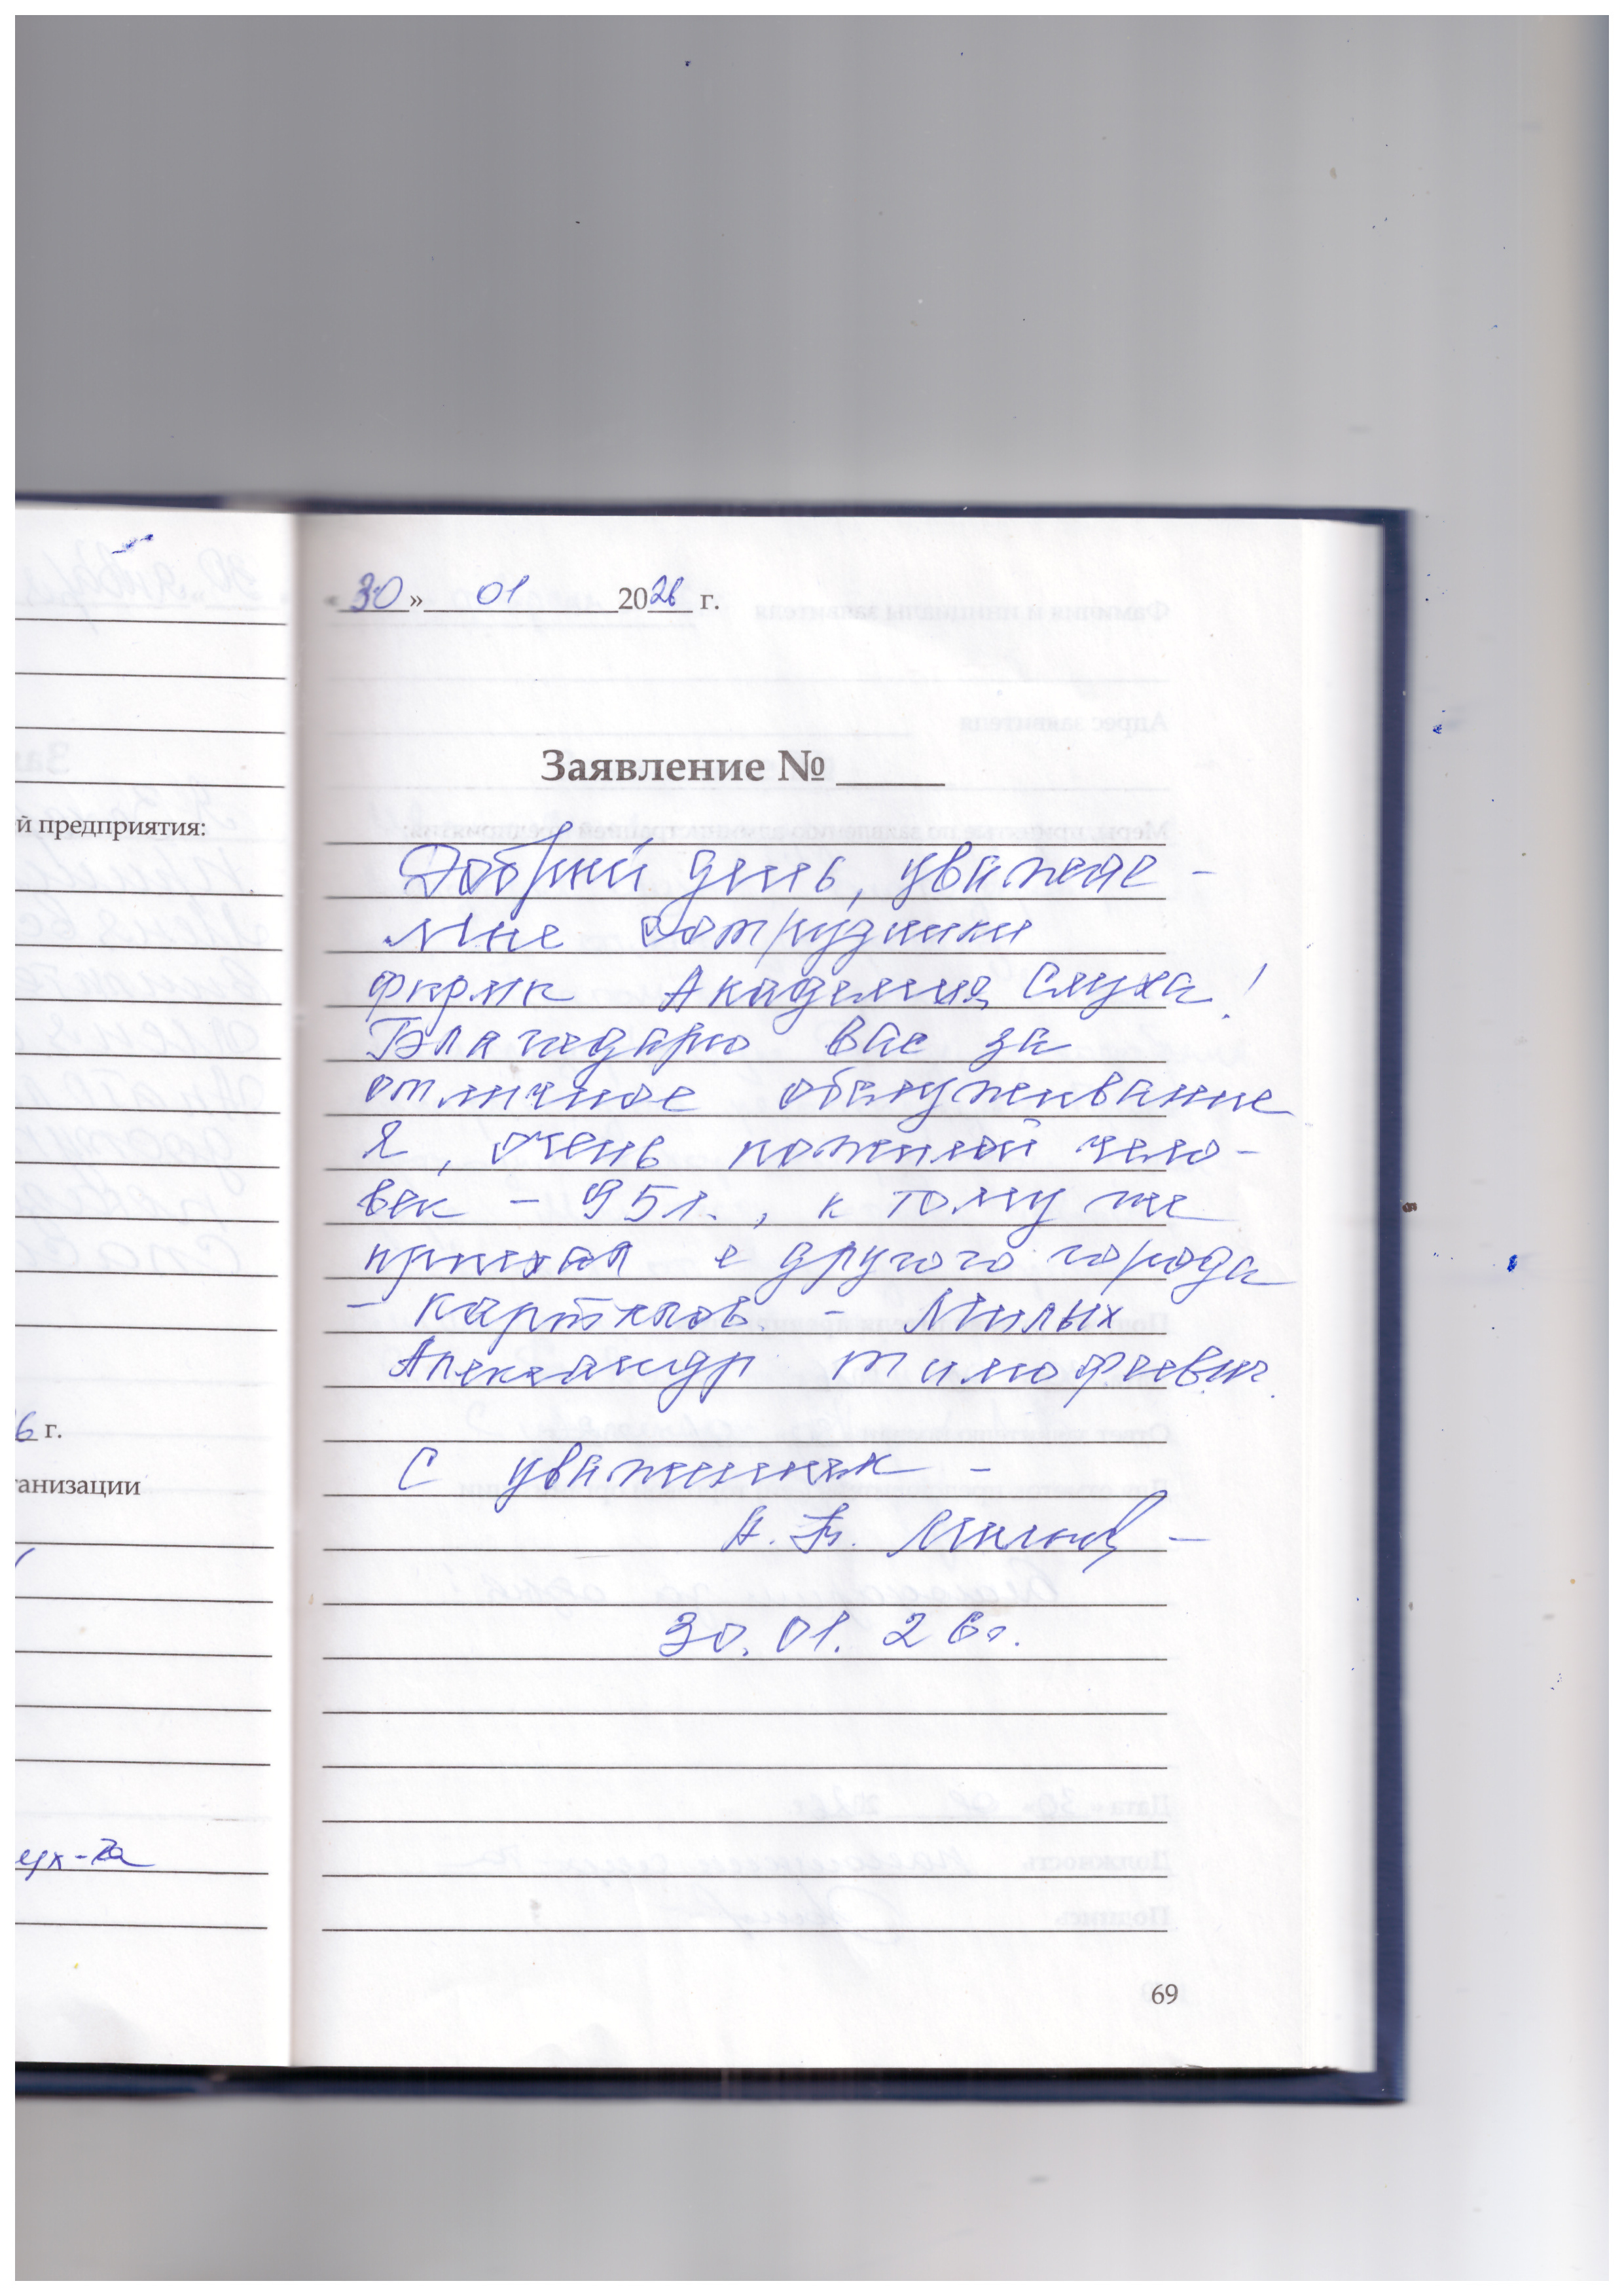 «30» 01 2026 г.
Заявление №
Добрый день, уважае-
мые сотрудники
фирмы Академия Слуха!
Благодарю вас за
отличное обслуживание
Я, очень пожилой чело-
век - 95 л., к тому же
приехал с другого города
- - Милых
Александр Тимофеевич.
С уважением -
А. Т. Милых -
30.01.26г.
69
й предприятия:
6 г.
ганизации